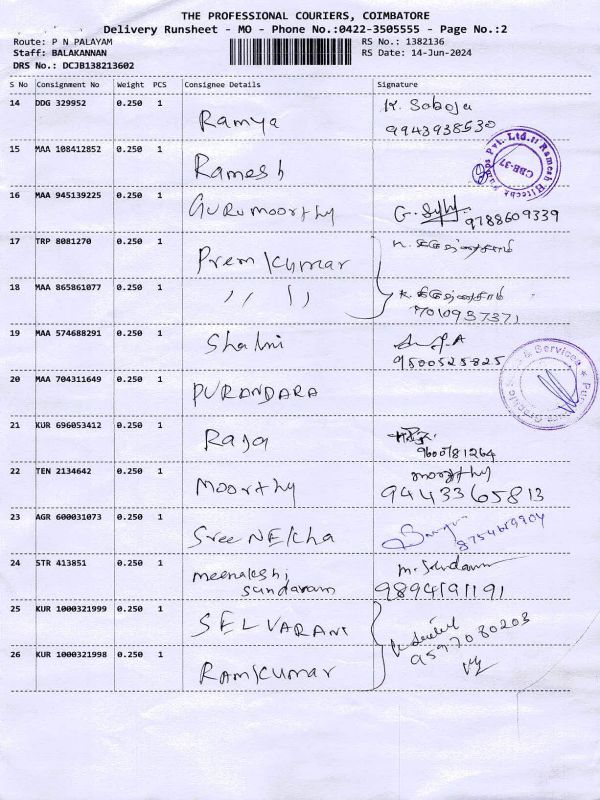 THE PROFESSIONAL COURIERS, COIMBATORE
Delivery Runsheet - MO - Phone No.:0422-3505555 - Page No.:2
Route: P N PALAYAM
Staff: BALAKANNAN
DRS No.: DCJB138213602
RS No.: 1382136
RS Date: 14-Jun-2024
S No Consignment No Weight PCS Consignee Details Signature
14 DDG 329952 0.250 1 Ramya K. Saboja
9943938530
15 MAA 108412852 0.250 1 Ramesh
Pvt. Ltd.
CBE-37
16 MAA 945139225 0.250 1 Gurumoorthy G. 9788609339
17 TRP 8081270 0.250 1 Premkumar
18 MAA 865861077 0.250 1 ,, ,,
7010937371
19 MAA 574688291 0.250 1 Shalni
9500525825
20 MAA 704311649 0.250 1 PURANDARA
& Services
21 KUR 696053412 0.250 1 Raja
9600781264
22 TEN 2134642 0.250 1 Moorthy moorthy
9443365813
23 AGR 600031073 0.250 1 Sree NEKha
8754619904
24 STR 413851 0.250 1 meenakshi
sundaram
m. Sundaram
9894191191
25 KUR 1000321999 0.250 1 SELVARANI
9597080203
26 KUR 1000321998 0.250 1 Ramkumar